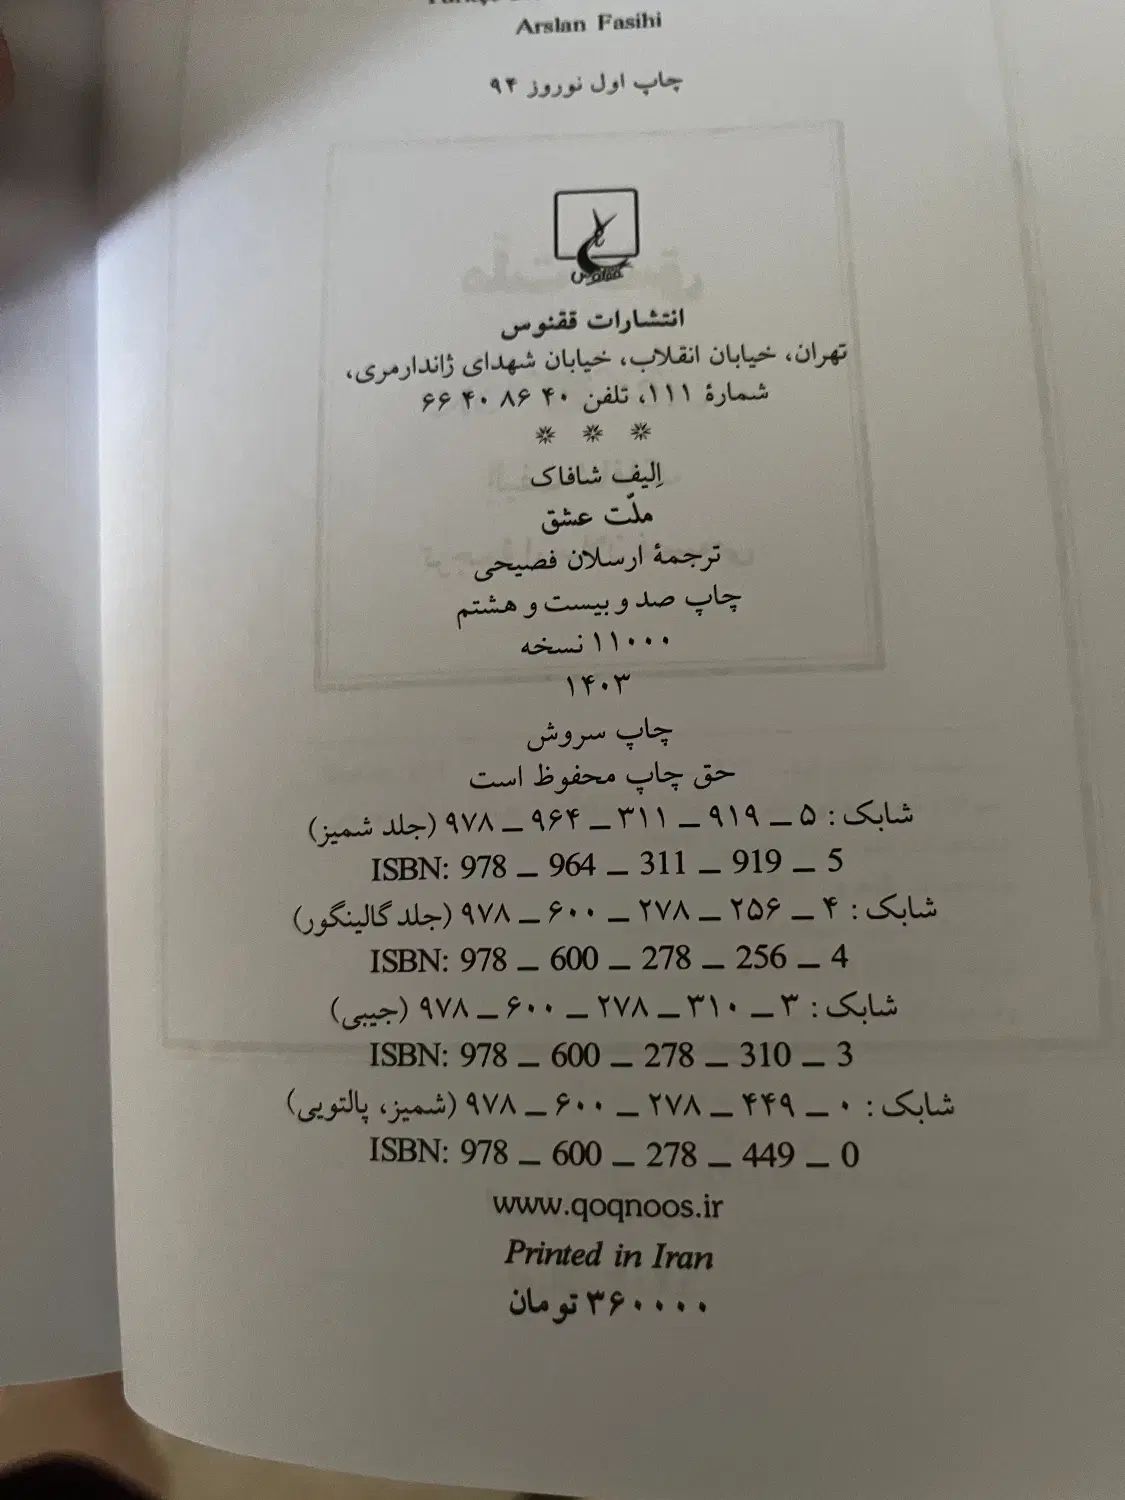 Arslan Fasihi
چاپ اول نوروز ۹۴
ققنوس
انتشارات ققنوس
تهران، خیابان انقلاب، خیابان شهدای ژاندارمری،
شمارهٔ ۱۱۱، تلفن ۴۰ ۸۶ ۴۰ ۶۶
* * *
اِلیف شافاک
ملّت عشق
ترجمهٔ ارسلان فصیحی
چاپ صد و بیست و هشتم
۱۱۰۰۰ نسخه
۱۴۰۳
چاپ سروش
حق چاپ محفوظ است
شابک : ۵ ـ ۹۱۹ ـ ۳۱۱ ـ ۹۶۴ ـ ۹۷۸ (جلد شمیز)
ISBN: 978 – 964 – 311 – 919 – 5
شابک : ۴ ـ ۲۵۶ ـ ۲۷۸ ـ ۶۰۰ ـ ۹۷۸ (جلد گالینگور)
ISBN: 978 – 600 – 278 – 256 – 4
شابک : ۳ ـ ۳۱۰ ـ ۲۷۸ ـ ۶۰۰ ـ ۹۷۸ (جیبی)
ISBN: 978 – 600 – 278 – 310 – 3
شابک : ۰ ـ ۴۴۹ ـ ۲۷۸ ـ ۶۰۰ ـ ۹۷۸ (شمیز، پالتویی)
ISBN: 978 – 600 – 278 – 449 – 0
www.qoqnoos.ir
Printed in Iran
۳۶۰۰۰۰ تومان